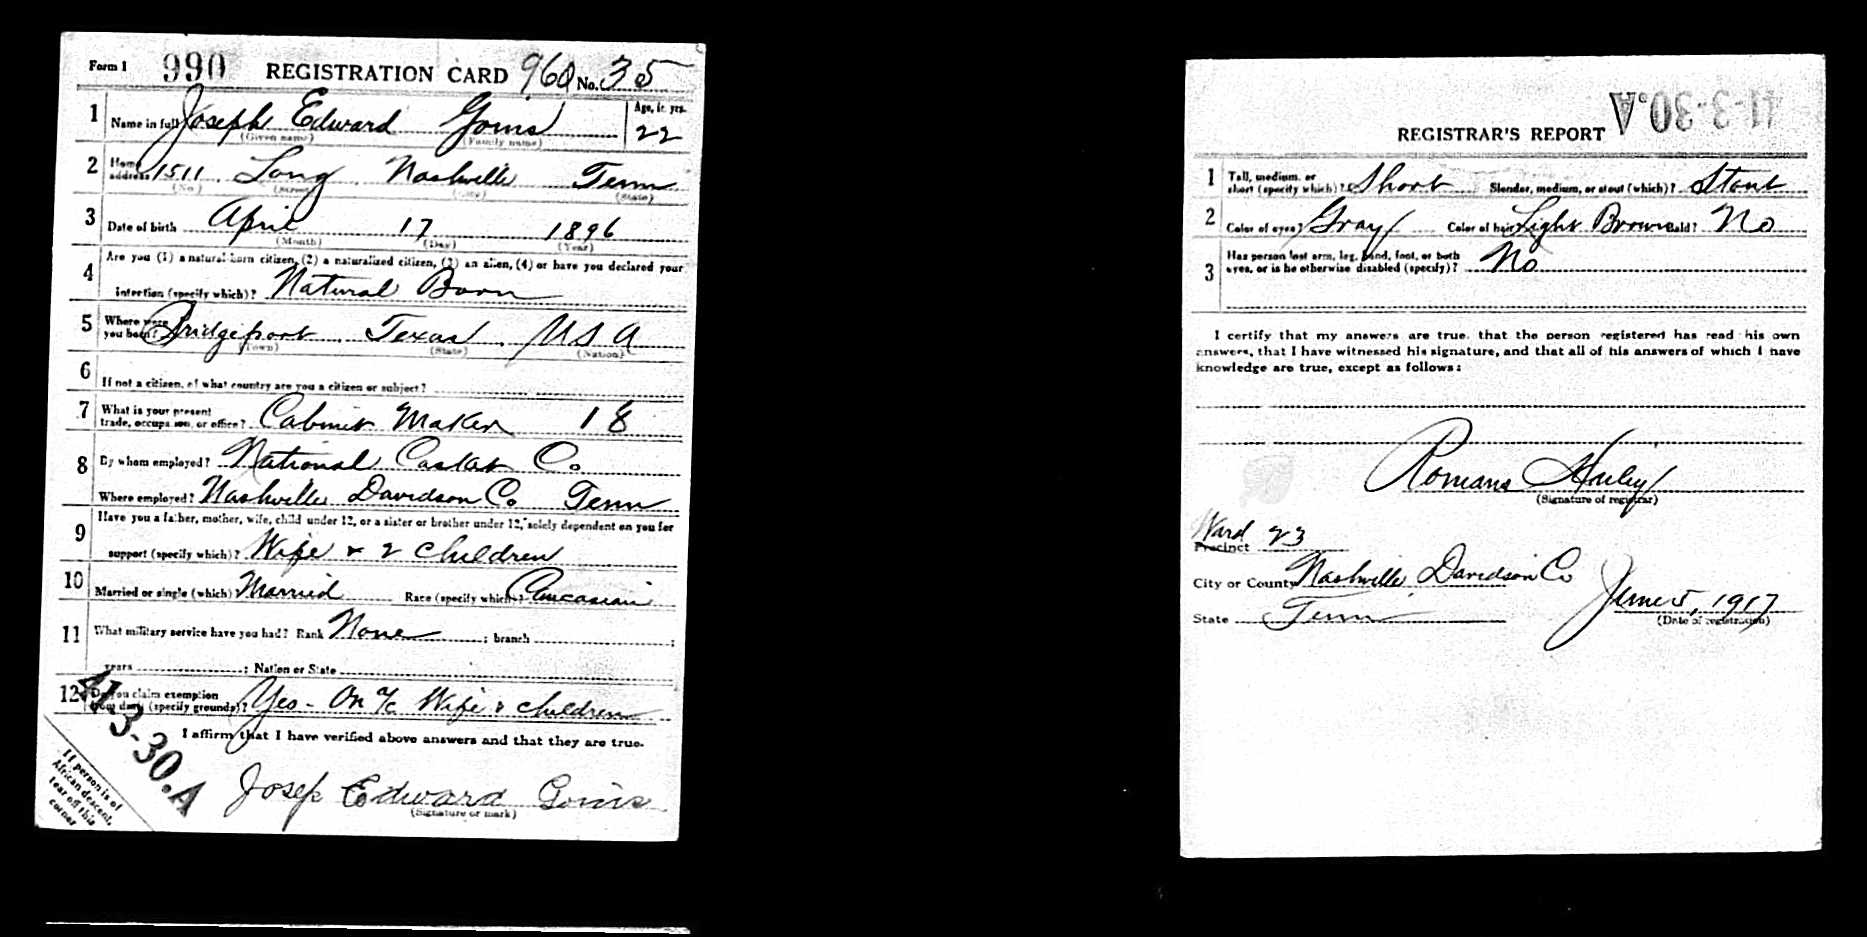 Form 1 990 REGISTRATION CARD 960 No. 35
1 Name in full Joseph Edward Goins Age, in yrs. 22
(Given name) (Family name)
2 Home address 1511 Long Nashville Tenn
(No.) (Street) (City) (State)
3 Date of birth April 17 1896
(Month) (Day) (Year)
4 Are you (1) a natural-born citizen, (2) a naturalized citizen, (3) an alien, (4) or have you declared your
intention (specify which)? Natural Born
5 Where were you born? Bridgeport Texas USA
(Town) (State) (Nation)
6 If not a citizen, of what country are you a citizen or subject?
7 What is your present
trade, occupation, or office? Cabinet Maker 18
8 By whom employed? National Casket Co
Where employed? Nashville Davidson Co Tenn
9 Have you a father, mother, wife, child under 12, or a sister or brother under 12, solely dependent on you for
support (specify which)? Wife & 2 children
10 Married or single (which)? Married Race (specify which)? Caucasian
11 What military service have you had? Rank None ; branch ;
years ; Nation or State
12 Do you claim exemption
from draft (specify grounds)? Yes - On a/c Wife & children
I affirm that I have verified above answers and that they are true.
41-3-30.A
Josep Edward Goins
(Signature or mark)
If person is of
African descent,
tear off this
corner
41-3-30.A
REGISTRAR'S REPORT
1 Tall, medium, or
short (specify which)? Short Slender, medium, or stout (which)? Stout
2 Color of eyes? Gray Color of hair? Light Brown Bald? No
3 Has person lost arm, leg, hand, foot, or both
eyes, or is he otherwise disabled (specify)? No
I certify that my answers are true, that the person registered has read his own
answers, that I have witnessed his signature, and that all of his answers of which I have
knowledge are true, except as follows:
Romans
(Signature of registrar)
Ward
Precinct 23
City or County Nashville Davidson Co
State Tenn June 5, 1917
(Date of registration)